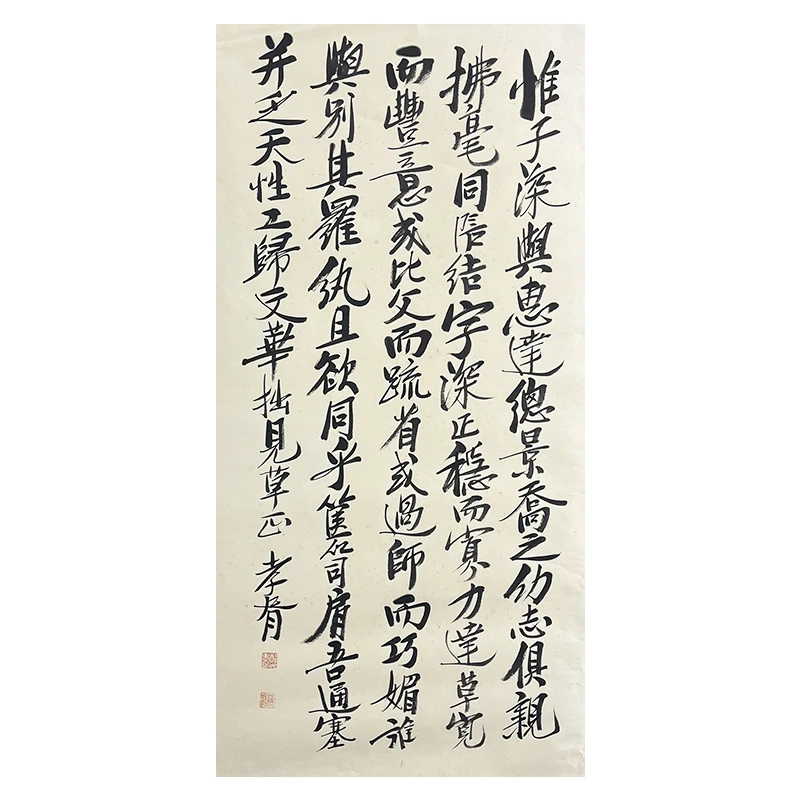 惟子深與惠達總景喬之幼志俱親
拂毫同帳結字深正穩而寡力達草寬
而豐意或比父而疏省或過師而巧媚誰
與別其羅紈且欲同乎篋笥肩吾通塞
并乏天性工歸文華拙見草正 孝胥